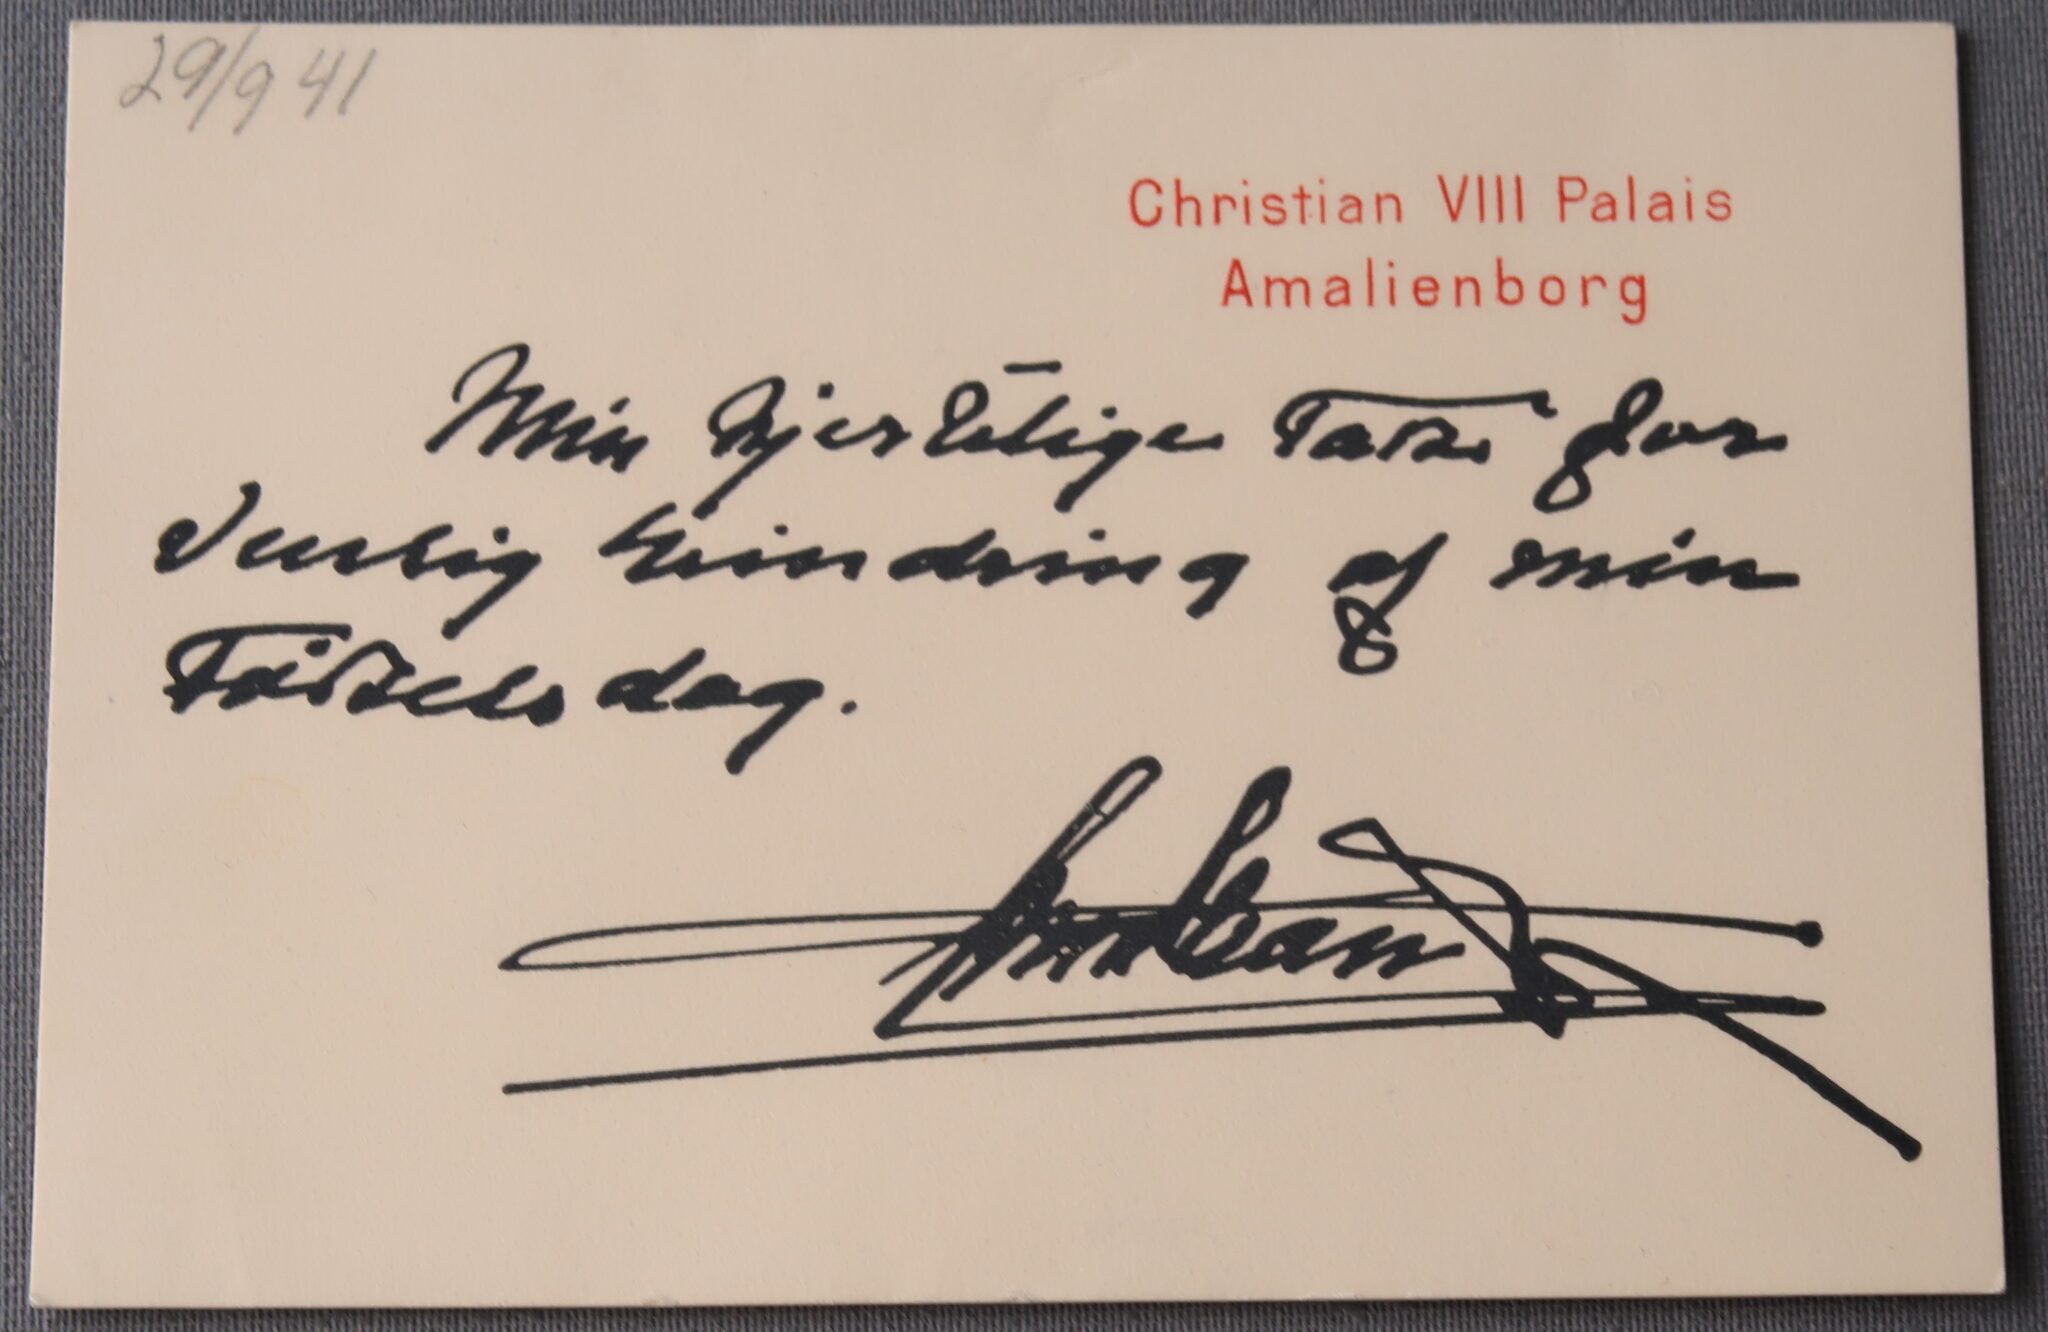 29/9 41
Christian VIII Palais
Amalienborg
Min hjertelige Tak for
venlig Erindring af min
Fødselsdag.